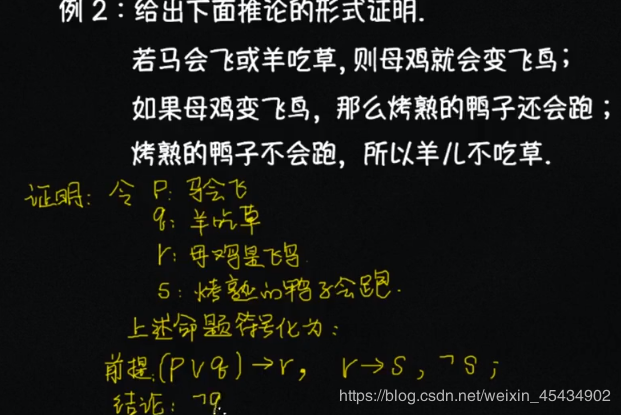 例 2：给出下面推论的形式证明.
若马会飞或羊吃草，则母鸡就会变飞鸟；
如果母鸡变飞鸟，那么烤熟的鸭子还会跑；
烤熟的鸭子不会跑，所以羊儿不吃草.
证明: 令 P: 马会飞
q: 羊吃草
r: 母鸡是飞鸟.
s: 烤熟的鸭子会跑.
上述命题符号化为:
前提: (P∨q)→r, r→s, ¬s;
结论: ¬q.
https://blog.csdn.net/weixin_45434902